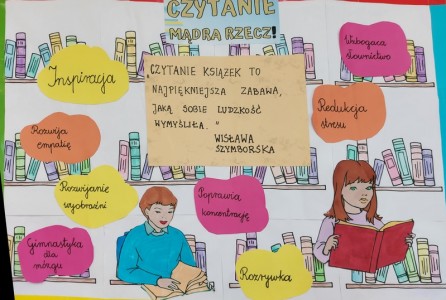 CZYTANIE
MĄDRA RZECZ!
CZYTANIE KSIĄŻEK TO
NAJPIĘKNIEJSZA ZABAWA,
JAKĄ SOBIE LUDZKOŚĆ
WYMYŚLIŁA."
WISŁAWA
SZYMBORSKA
Inspiracja
Wzbogaca
słownictwo
Rozwija
empatię
Redukcja
stresu
Rozwijanie
wyobraźni
Poprawia
koncentrację
Gimnastyka
dla
mózgu
Rozrywka